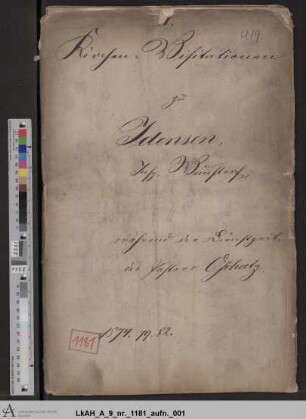 419.
Kirchen-Visitationen
zu
Idensen,
Insp. Wunstorf,
während der Dienstzeit
des Pastors
1874. 79. 82.
1181
LkAH_A_9_nr._1181_aufn._001